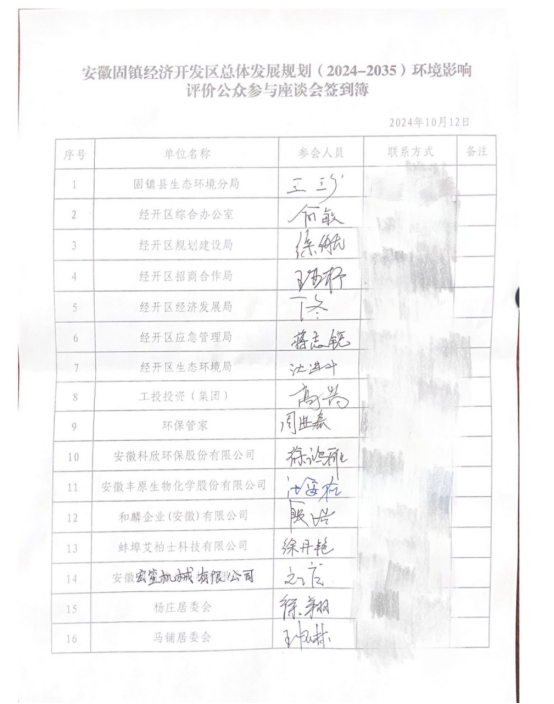 安徽固镇经济开发区总体发展规划（2024-2035）环境影响
评价公众参与座谈会签到簿
2024年10月12日
序号 单位名称 参会人员 联系方式 备注
1 固镇县生态环境分局
2 经开区综合办公室 何敏
3 经开区规划建设局
4 经开区招商合作局
5 经开区经济发展局 丁冬
6 经开区应急管理局 蒋志锐
7 经开区生态环境局
8 工投投资（集团） 高尚
9 环保管家
10 安徽科欣环保股份有限公司
11 安徽丰原生物化学股份有限公司
12 和麟企业(安徽)有限公司 殷浩
13 蚌埠艾柏士科技有限公司 徐丹艳
14 安徽宏笙机械有限公司
15 杨庄居委会 徐翔
16 马铺居委会